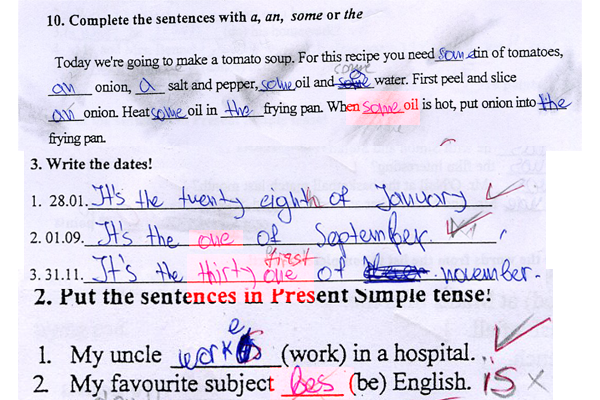 10. Complete the sentences with a, an, some or the
Today we're going to make a tomato soup. For this recipe you need some tin of tomatoes,
some
an onion, a salt and pepper, some oil and water. First peel and slice
an onion. Heat some oil in the frying pan. When some oil is hot, put onion into the
frying pan.
3. Write the dates!
1. 28.01. It's the twenty eighth of January
2. 01.09. It's the one of September.
first
3. 31.11. It's the thirty one of november.
2. Put the sentences in Present Simple tense!
1. My uncle works (work) in a hospital.
2. My favourite subject bes (be) English. is